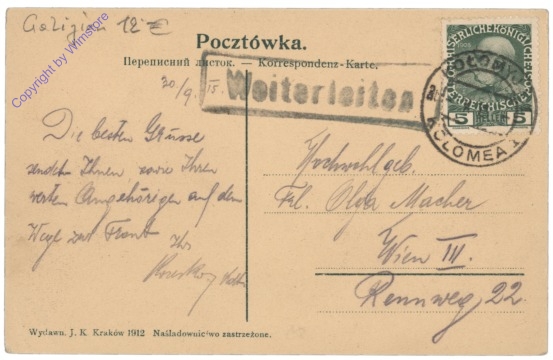 Galizien 12 €
Copyright by Wimstore
Pocztówka.
Переписний листок. — Korrespondenz-Karte.
30/9 15.
Weiterleiten
KOŁOMYJA
KOLOMEA 1
KAISERLICHE KÖNIGLICHE
ÖSTERREICHISCHE
5 HELLER 5
Die besten Grüsse
sendet Ihnen, sowie Ihren
werten Angehörigen auf dem
Wege zur Front
Ihr
Hochwohlgeb.
Frl. Olga Macher
Wien III.
Rennweg 22
Wydawn. J. K. Kraków 1912 Naśladownictwo zastrzeżone.